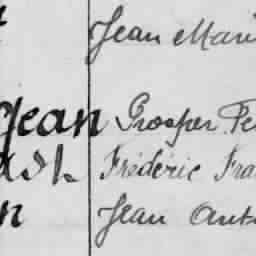 Jean Mari
Jean Prosper Fe
Frédéric Fra
n Jean Anto